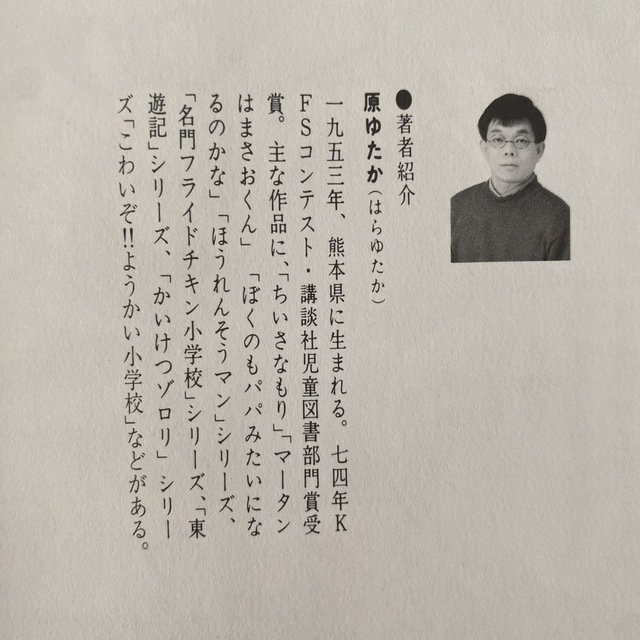 ●著者紹介
原ゆたか(はらゆたか)
一九五三年、熊本県に生まれる。七四年K
FSコンテスト・講談社児童図書部門賞受
賞。主な作品に、「ちいさなもり」「マータン
はまさおくん」「ぼくのもパパみたいにな
るのかな」「ほうれんそうマン」シリーズ、
「名門フライドチキン小学校」シリーズ、「東
遊記」シリーズ、「かいけつゾロリ」シリー
ズ「こわいぞ!!ようかい小学校」などがある。